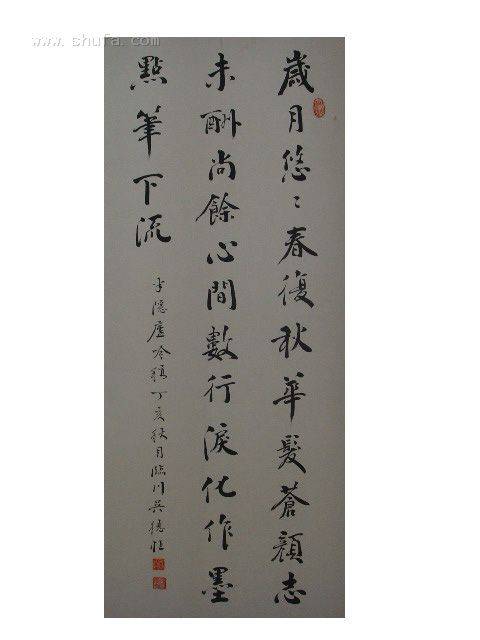 www.shufa.com
歲月悠々春復秋華髮蒼顏志
未酬尚餘心間數行淚化作墨
點筆下流
隱廬吟稿丁亥秋月臨川吳德恒